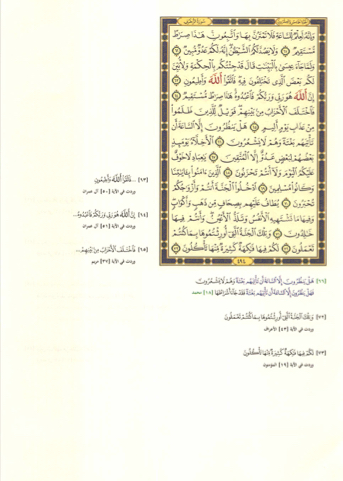 سورة الزخرف
وَإِنَّهُۥ لَعِلْمٌ لِّلسَّاعَةِ فَلَا تَمْتَرُنَّ بِهَا وَٱتَّبِعُونِ هَٰذَا صِرَٰطٌ
مُّسْتَقِيمٌ ۝٦١ وَلَا يَصُدَّنَّكُمُ ٱلشَّيْطَٰنُ إِنَّهُۥ لَكُمْ عَدُوٌّ مُّبِينٌ ۝٦٢
وَلَمَّا جَآءَ عِيسَىٰ بِٱلْبَيِّنَٰتِ قَالَ قَدْ جِئْتُكُم بِٱلْحِكْمَةِ وَلِأُبَيِّنَ
لَكُم بَعْضَ ٱلَّذِى تَخْتَلِفُونَ فِيهِ فَٱتَّقُوا۟ ٱللَّهَ وَأَطِيعُونِ ۝٦٣
إِنَّ ٱللَّهَ هُوَ رَبِّى وَرَبُّكُمْ فَٱعْبُدُوهُ هَٰذَا صِرَٰطٌ مُّسْتَقِيمٌ ۝٦٤
فَٱخْتَلَفَ ٱلْأَحْزَابُ مِنۢ بَيْنِهِمْ فَوَيْلٌ لِّلَّذِينَ ظَلَمُوا۟
مِنْ عَذَابِ يَوْمٍ أَلِيمٍ ۝٦٥ هَلْ يَنظُرُونَ إِلَّا ٱلسَّاعَةَ أَن
تَأْتِيَهُم بَغْتَةً وَهُمْ لَا يَشْعُرُونَ ۝٦٦ ٱلْأَخِلَّآءُ يَوْمَئِذٍۭ
بَعْضُهُمْ لِبَعْضٍ عَدُوٌّ إِلَّا ٱلْمُتَّقِينَ ۝٦٧ يَٰعِبَادِ لَا خَوْفٌ
عَلَيْكُمُ ٱلْيَوْمَ وَلَآ أَنتُمْ تَحْزَنُونَ ۝٦٨ ٱلَّذِينَ ءَامَنُوا۟ بِـَٔايَٰتِنَا
وَكَانُوا۟ مُسْلِمِينَ ۝٦٩ ٱدْخُلُوا۟ ٱلْجَنَّةَ أَنتُمْ وَأَزْوَٰجُكُمْ
تُحْبَرُونَ ۝٧٠ يُطَافُ عَلَيْهِم بِصِحَافٍ مِّن ذَهَبٍ وَأَكْوَابٍ
وَفِيهَا مَا تَشْتَهِيهِ ٱلْأَنفُسُ وَتَلَذُّ ٱلْأَعْيُنُ وَأَنتُمْ فِيهَا
خَٰلِدُونَ ۝٧١ وَتِلْكَ ٱلْجَنَّةُ ٱلَّتِىٓ أُورِثْتُمُوهَا بِمَا كُنتُمْ
تَعْمَلُونَ ۝٧٢ لَكُمْ فِيهَا فَٰكِهَةٌ كَثِيرَةٌ مِّنْهَا تَأْكُلُونَ ۝٧٣
٤٩٤
[٦٣] ... فَٱتَّقُوا۟ ٱللَّهَ وَأَطِيعُونِ
وردت في الآية [٥٠] آل عمران
[٦٤] إِنَّ ٱللَّهَ هُوَ رَبِّى وَرَبُّكُمْ فَٱعْبُدُوهُ...
وردت في الآية [٥١] آل عمران
[٦٥] فَٱخْتَلَفَ ٱلْأَحْزَابُ مِنۢ بَيْنِهِمْ...
وردت في الآية [٣٧] مريم
[٦٦] هَلْ يَنظُرُونَ إِلَّا ٱلسَّاعَةَ أَن تَأْتِيَهُم بَغْتَةً وَهُمْ لَا يَشْعُرُونَ
فَهَلْ يَنظُرُونَ إِلَّا ٱلسَّاعَةَ أَن تَأْتِيَهُم بَغْتَةً فَقَدْ جَآءَ أَشْرَاطُهَا [١٨] محمد
[٧٢] وَتِلْكَ ٱلْجَنَّةُ ٱلَّتِىٓ أُورِثْتُمُوهَا بِمَا كُنتُمْ تَعْمَلُونَ
وردت في الآية [٤٣] الأعراف
[٧٣] لَكُمْ فِيهَا فَٰكِهَةٌ كَثِيرَةٌ مِّنْهَا تَأْكُلُونَ
وردت في الآية [١٩] المؤمنون